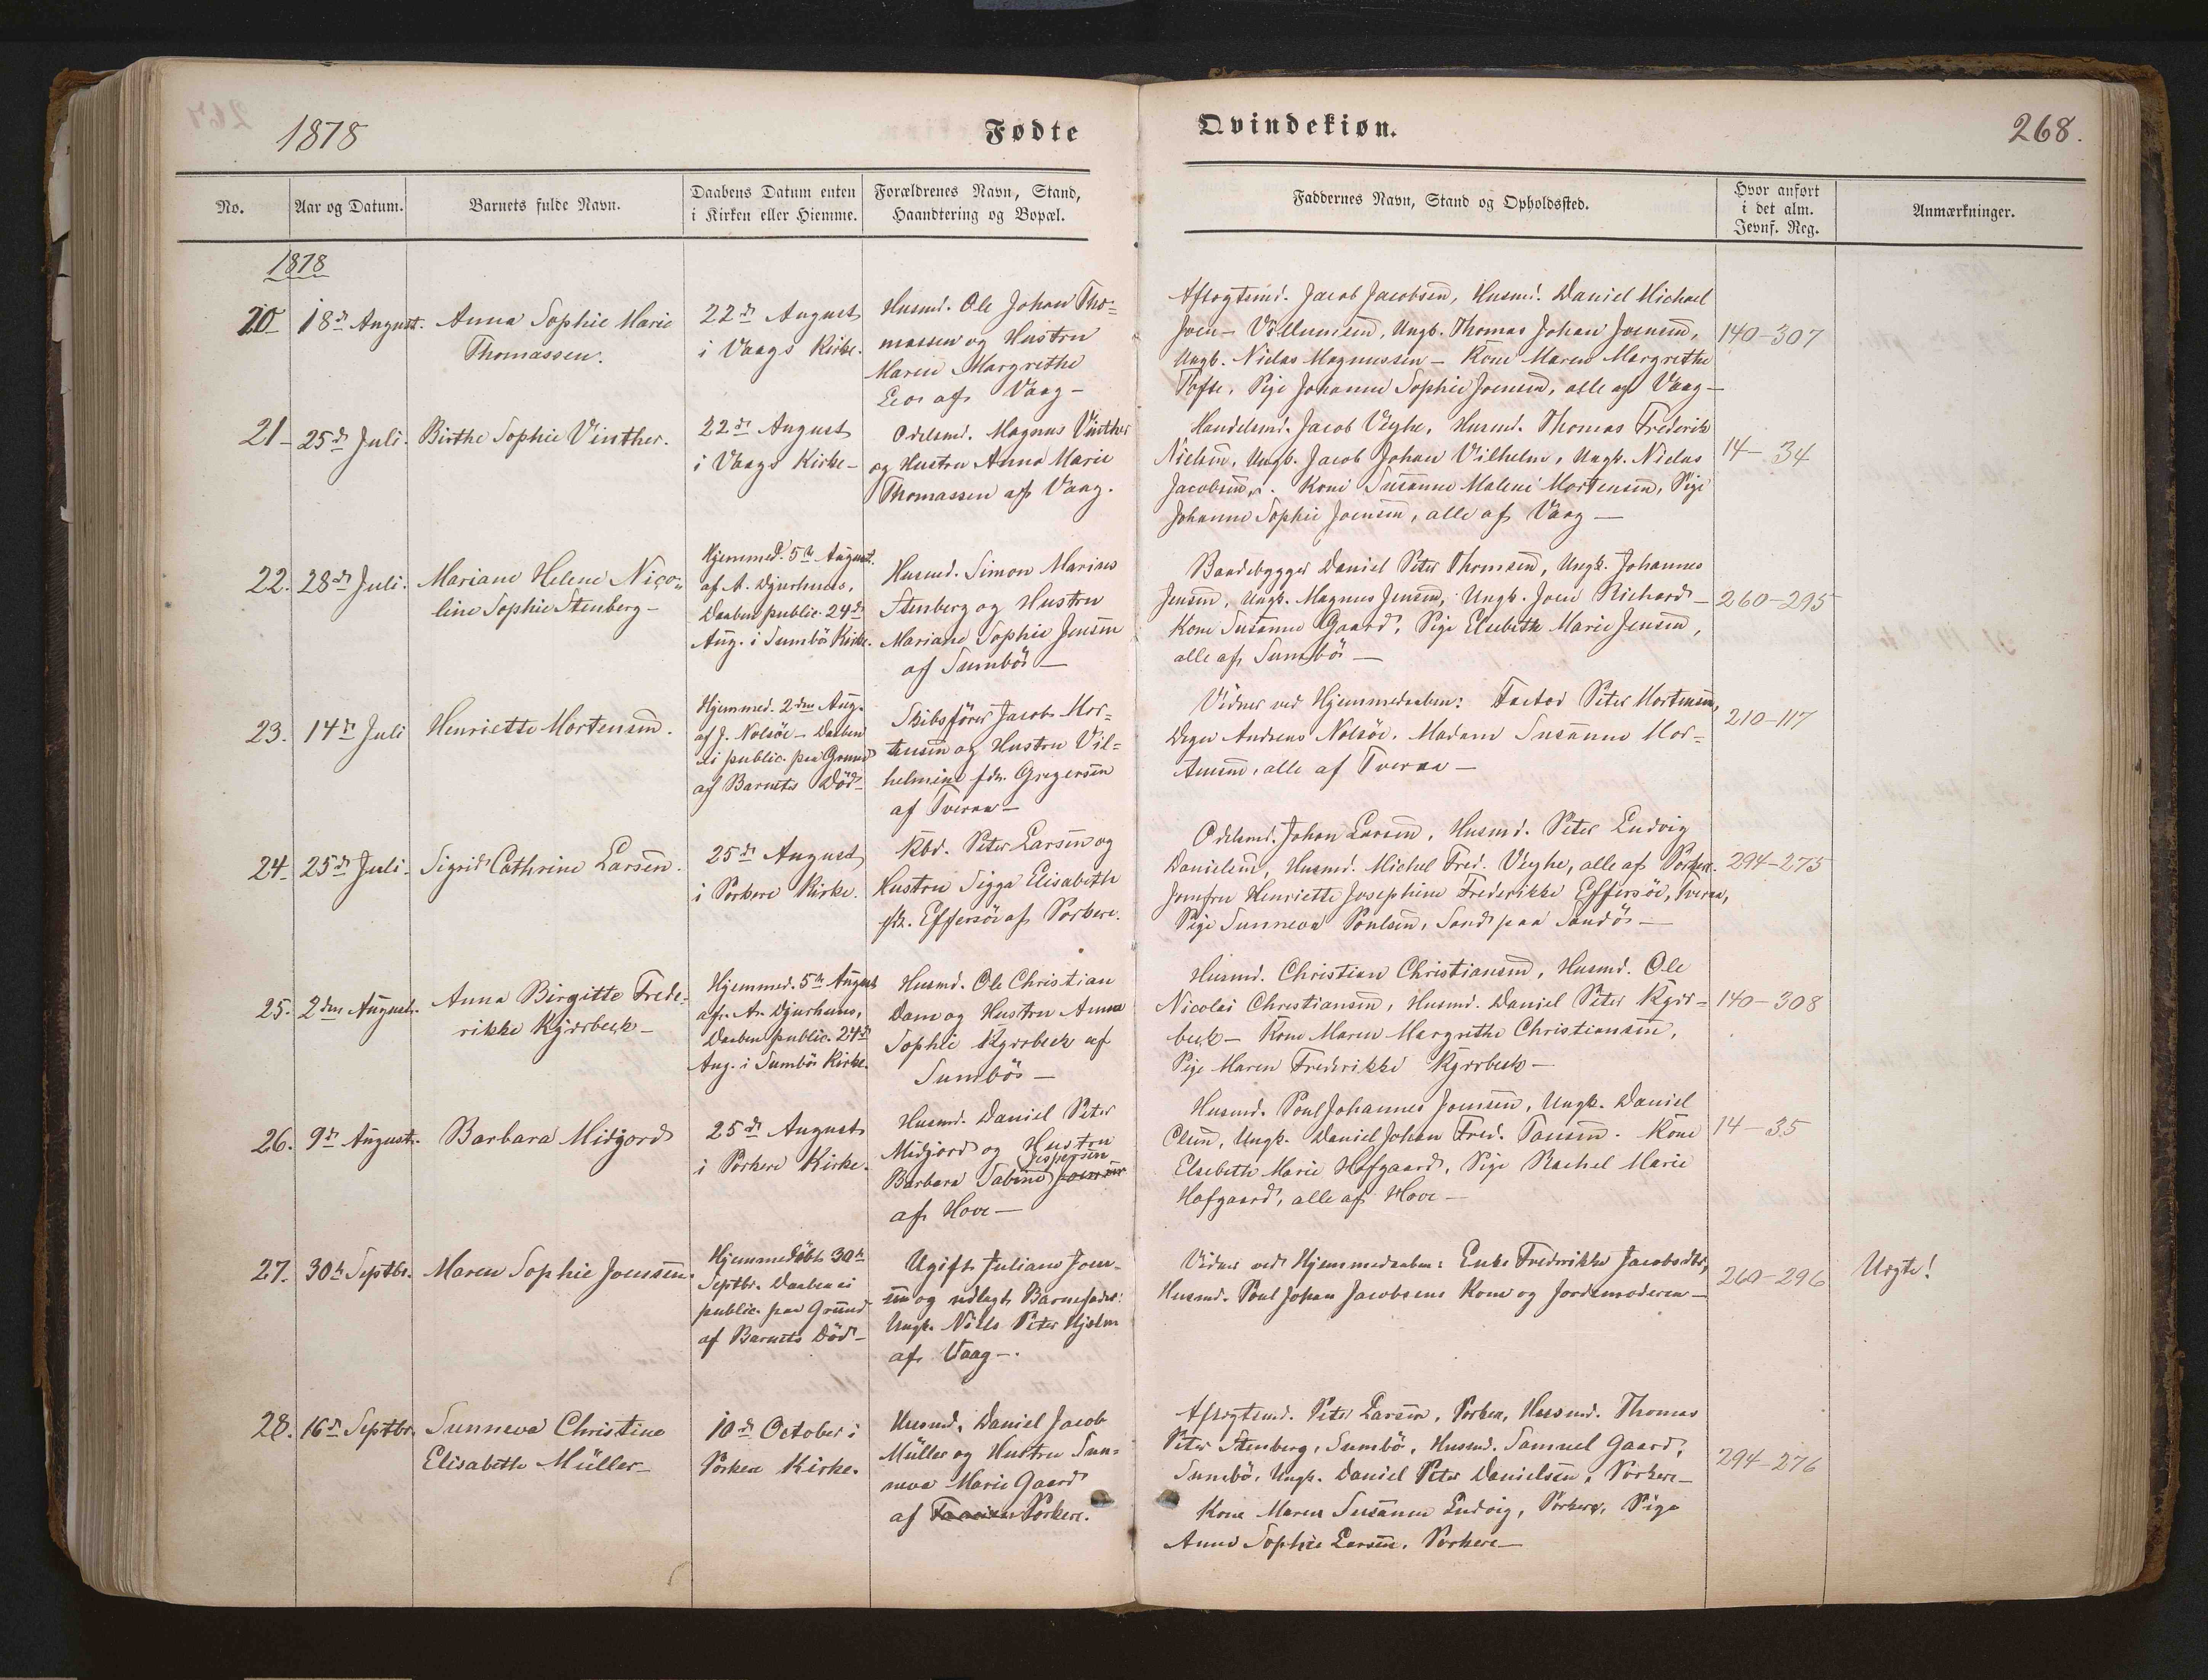 1878
Fødte
Qvindekiøn.
268.
No.
Aar og Datum.
Barnets fulde Navn.
Daabens Datum enten
i Kirken eller Hiemme.
Forældrenes Navn, Stand,
Haandtering og Bopæl.
Faddernes Navn, Stand og Opholdssted.
Hvor anført
i det alm.
Jevnf. Reg.
Anmærkninger.
1878
20
18de August.
Anna Sophie Marie
Thomassen.
22de August
i Vaags Kirke.
Husmd. Ole Johan Tho-
massen og Hustru
Maren Margrethe
af Vaag-
Aftægtsmd. Jacob Jacobsen, Husmd. Daniel Michael
Joen- Villumsen, Ungk. Thomas Johan Joensen,
Ungk. Niclas Magnussen- Kone Maren Margrethe
Tofte, Pige Johanne Sophie Joensen, alle af Vaag-
140-307
21-
25de Juli.
Birthe Sophie Vinther.
22de August
i Vaags Kirke-
Odelsmd. Magnus Vinther
og Hustru Anna Marie
Thomassen af Vaag.
Handelsmd. Jacob Veyhe, Husmd. Thomas Frederik
Nielsen, Ungk. Jacob Johan Vilhelm, Ungk. Niclas
Jacobsen. Kone Susanne Malene Mortensen, Pige
Johanne Sophie Joensen, alle af Vaag-
14-34
22.
28de Juli.
Mariane Helene Nico-
line Sophie Stenberg-
Hjemmed. 5te August.
af A. Djurhuus,
Daaben public. 24de
Aug. i Sumbö Kirke.
Husmd. Simon Marius
Stenberg og Hustru
Mariane Sophie Jensen
af Sumbö-
Baadebygger Daniel Peter Thomsen, Ungk. Johannes
Jensen, Ungk. Magnus Jensen, Ungk. Joen Richard-
Kone Susanne Gaard, Pige Elsebeth Marie Jensen,
alle af Sumbö-
260-295
23.
14de Juli
Henriette Mortensen.
Hjemmed. 2den Aug.
af J. Nolsöe- Daaben
ei public. paa Grund
af Barnets Död-
Skibsförer Jacob Mor-
tensen og Hustru Vil-
helmine fdt. Gregersen
af Tveraa-
Vidner ved Hjemmedaaben: Factor Peter Mortensen,
Degn Andreas Nolsöe. Madam Susanne Mor-
tensen, alle af Tveraa-
210-117
24-
25de Juli-
Sigrid Cathrine Larsen.
25de August
i Porkere Kirke.
Kbd. Peter Larsen og
Hustru Sigga Elisabeth
fdt. Effersöe af Porkere.
Odelsmd. Johan Larsen, Husmd. Peter Ludvig
Danielsen, Husmd. Michel Fred. Veyhe, alle af Porkere.
Jomfru Henriette Josephine Frederikke Effersöe, Tveraa,
Pige Sunneva Poulsen, Sand paa Sandö-
294-275
25.
2den August.
Anna Birgitte Frede-
rikke Kjærbeck-
Hjemmed. 5te August
af A. Djurhuus,
Daaben public. 24de
Aug. i Sumbö Kirke.
Husmd. Ole Christian
Dam og Hustru Anna
Sophie Kjærbeck af
Sumbö-
Husmd. Christian Christiansen, Husmd. Ole
Nicolai Christiansen, Husmd. Daniel Peter Kjær-
beck- Kone Maren Margrethe Christiansen,
Pige Maren Frederikke Kjærbeck-
140-308
26.
9de August.
Barbara Midjord
25de August
i Porkere Kirke.
Husmd. Daniel Peter
Midjord og Hustru
Jespersen
Barbara Sabine Joensen
af Hove-
Husmd. Poul Johannes Joensen, Ungk. Daniel
Olsen, Ungk. Daniel Johan Fred. Tausen. Kone
Elsebeth Marie Hofgaard, Pige Rachel Marie
Hofgaard, alle af Hove-
14-35
27.
30te Septbr.
Maren Sophie Joensen.
Hjemmedöbt 30te
Septbr. Daaben ei
public. paa Grund
af Barnets Död-
Ugift Juliane Joen-
sen og udlagt Barnefader:
Ungk. Niels Peter Hjelm
af Vaag-.
Vidner ved Hjemmedaaben: Enke Frederikke Jacobsdtr,
Husmd. Poul Johan Jacobsens Kone og Jordemoderen-
260-296
Uægte!
28.
16de Septbr.
Sunneva Christine
Elisabeth Müller-
10de October i
Porkere Kirke.
Husmd. Daniel Jacob
Müller og Hustru Sun-
neva Marie Gaard
af Porkere.
Aftægtsmd. Peter Larsen, Porkere, Husmd. Thomas
Peter Stenberg, Sumbö, Husmd. Samuel Gaard,
Sumbö, Ungk. Daniel Peter Danielsen, Porkere-
Kone Maren Susanne Ludvig, Porkere, Pige
Anna Sophie Larsen, Porkere-
294-276